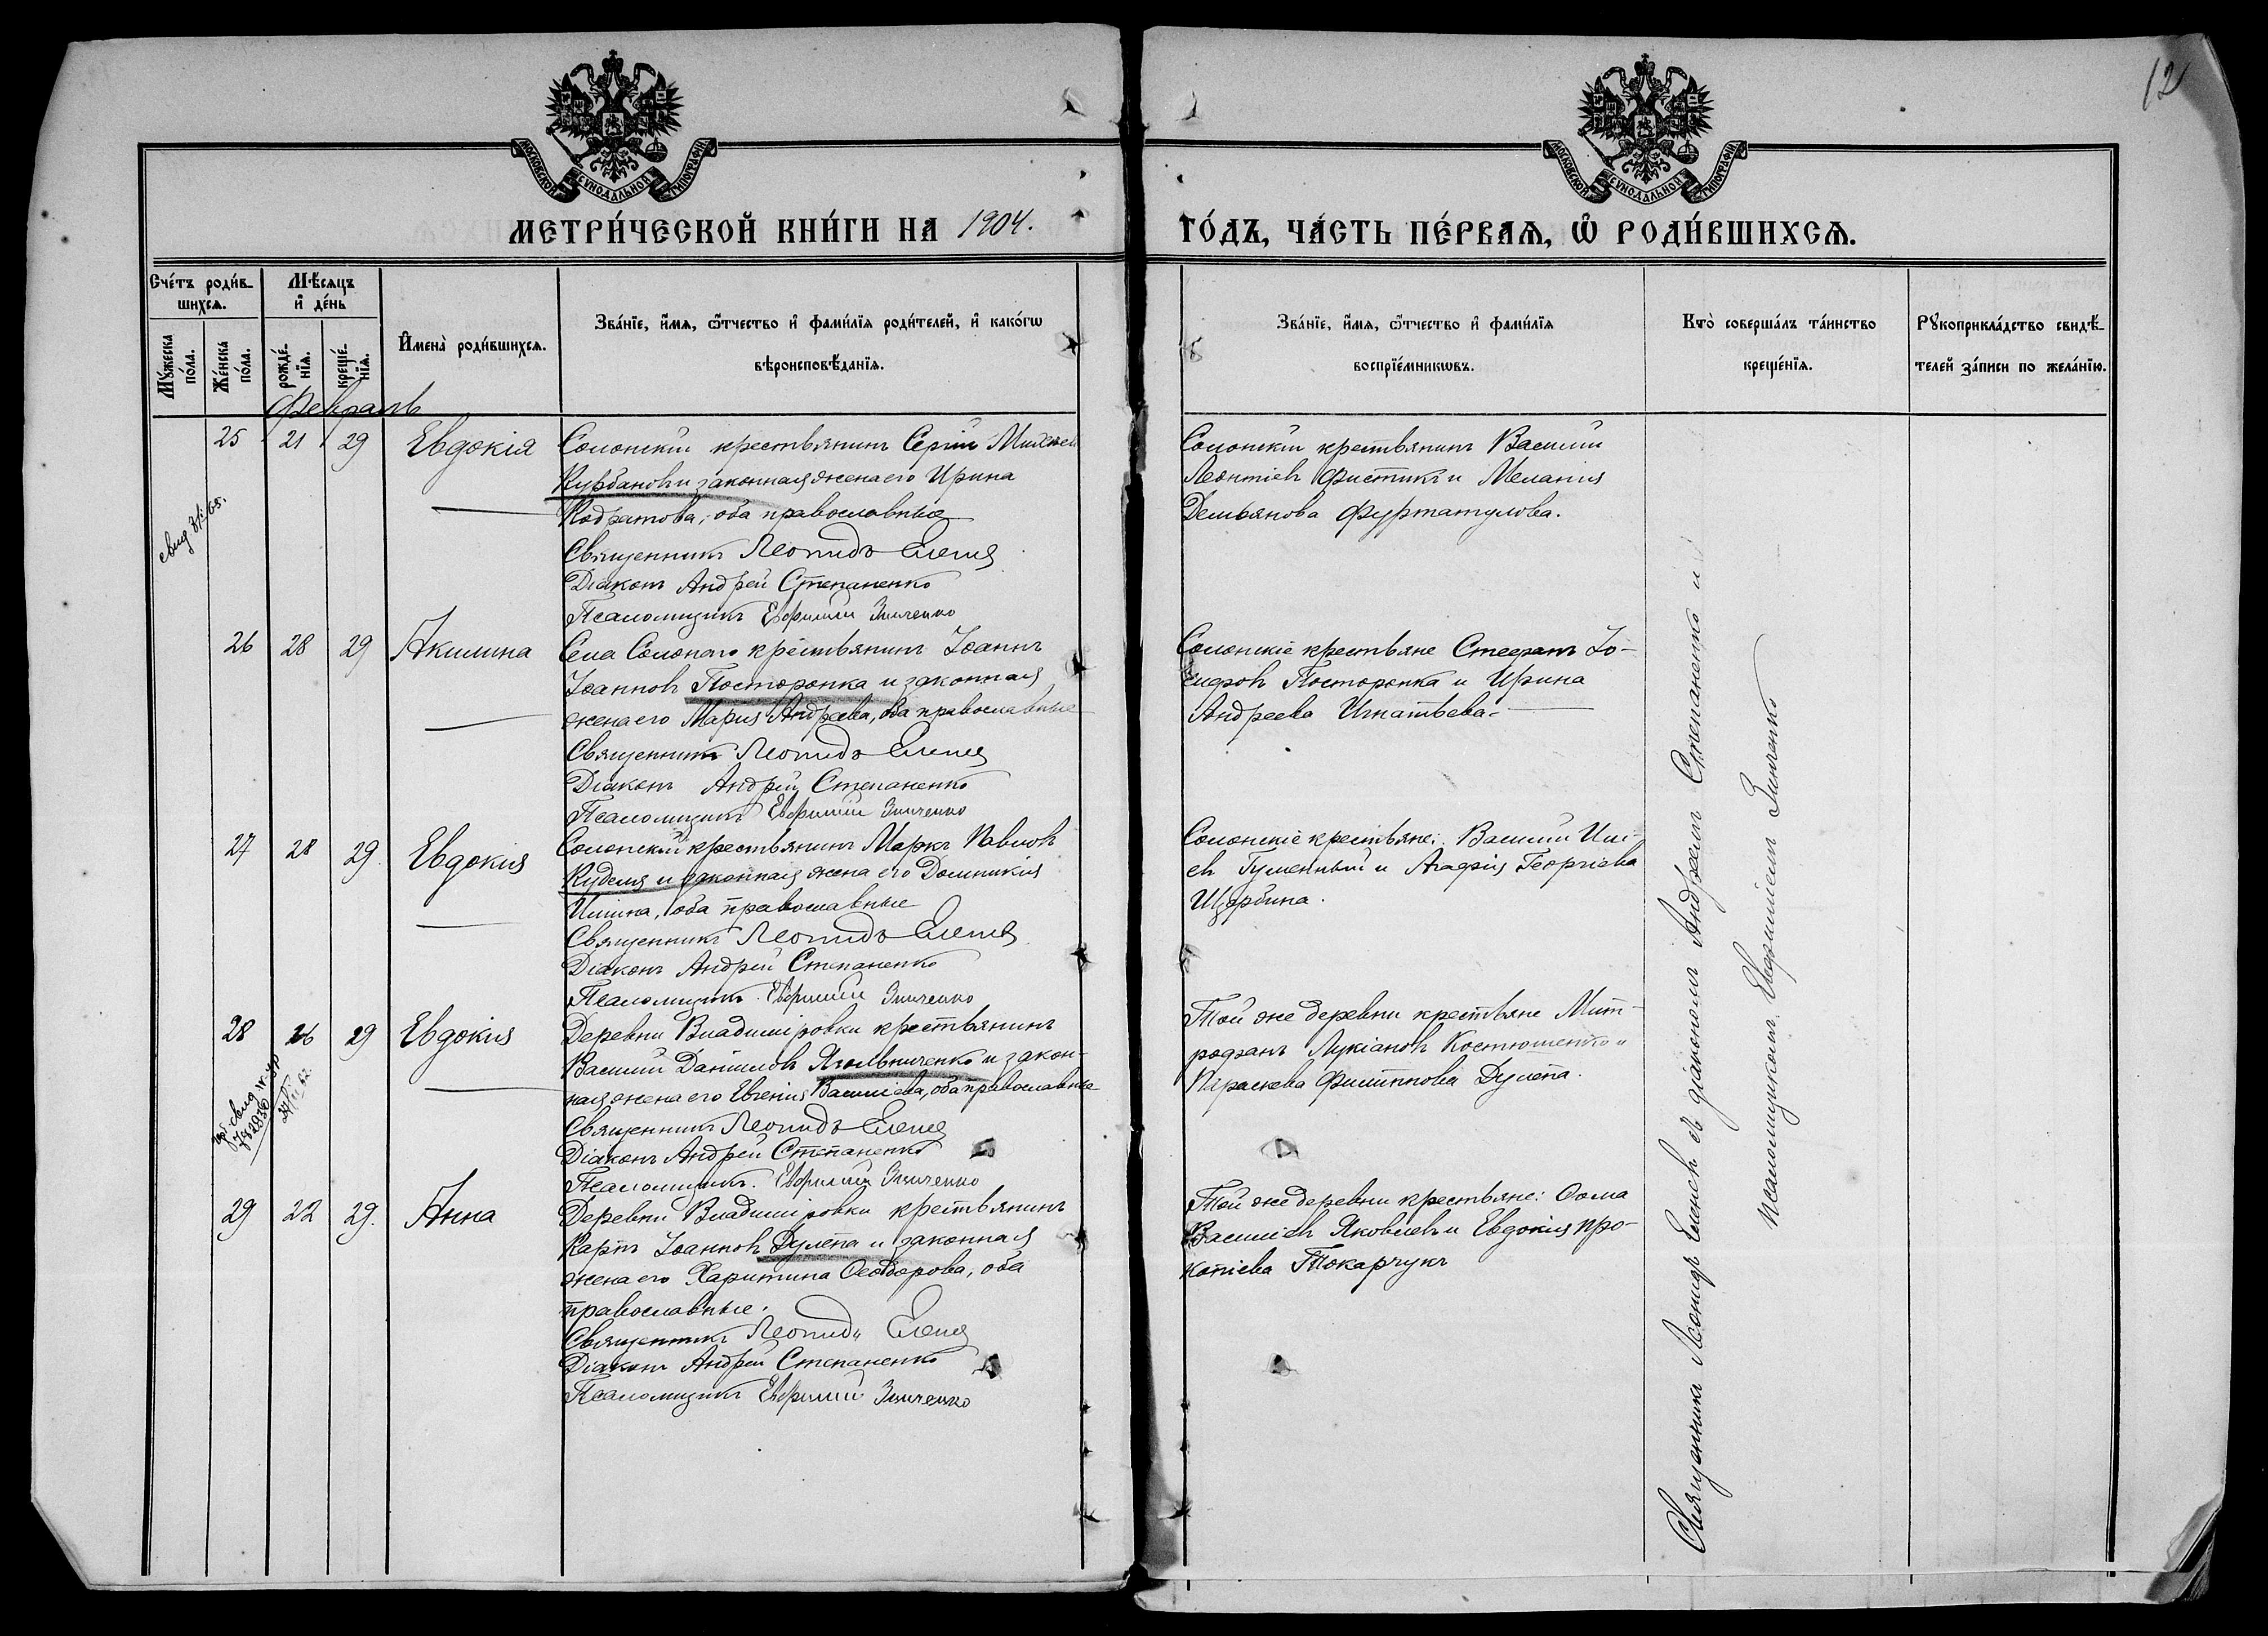 12
МОСКОВСКОЙ СУНОДАЛЬНОЙ ТИПОГРАФІИ
МОСКОВСКОЙ СУНОДАЛЬНОЙ ТИПОГРАФІИ
МЕТРИ́ЧЕСКОЙ КНИ́ГИ НА 1904. ГО́ДЪ, ЧА́СТЬ ПЕ́РВАѦ, Ѡ҆ РОДИ́ВШИХСѦ.
Сче́тъ роди́вшихсѧ.
Мꙋ́жеска по́ла.
Же́нска по́ла.
Мѣ́сяцъ и҆ де́нь
рожде́нїѧ.
креще́нїѧ.
И҆мена̀ роди́вшихсѧ.
Зва́нїе, и҆́мѧ, ѻ҆́тчество и҆ фами́лїѧ роди́телей, и҆ како́гѡ
вѣроисповѣ́данїѧ.
Зва́нїе, и҆́мѧ, ѻ҆́тчество и҆ фами́лїѧ
воспрїе́мникѡвъ.
Кто̀ соверша́лъ та́инство
креще́нїѧ.
Рꙋкоприкла́дство свидѣ́-
телей за́писи по жела́нїю.
Февраль
25 21 29 Евдокія
Солонскій крестьянинъ Сергій
Курбановъ и законная жена его Ирина
Кодратова, оба православные
Священникъ Леонидъ Еленев
Діаконъ Андрей Степаненко
Псаломщикъ Евфимій Зинченко
Солонскій крестьянинъ Василій
Леонтіевъ Фистикъ и Меланія
Демьянова Фуртатулова.
26 28 29 Акилина
Села Солонаго крестьянинъ Іоаннъ
Іоанновъ Посторонка и законная
жена его Марія Андреева, оба православные
Священникъ Леонидъ Еленев
Діаконъ Андрей Степаненко
Псаломщикъ Евфимій Зинченко
Солонскіе крестьяне Стефанъ Іо-
сифовъ Посторонка и Ирина
Андреева Игнатьева
27 28 29. Евдокія
Солонскій крестьянинъ Маркъ Павловъ
Куделя и законная жена его Домникія
Иліина, оба православные
Священникъ Леонидъ Еленев
Діаконъ Андрей Степаненко
Псаломщикъ Евфимій Зинченко
Солонскіе крестьяне: Василій Илі-
евъ Гуменный и Агафія Георгіева
Щербина.
28 26 29 Евдокія
Деревни Владиміровки крестьянинъ
Василій Даніиловъ Ягольниченко и закон-
ная жена его Евгенія Василіева, оба православные
Священникъ Леонидъ Еленев
Діаконъ Андрей Степаненко
Псаломщикъ Евфимій Зинченко
Той же деревни крестьяне Мит-
рофанъ Лукіановъ Костюшенко и
Параскева Филиппова Дулепа.
29 22 29. Анна
Деревни Владиміровки крестьянинъ
Карпъ Іоанновъ Дулепа и законная
жена его Харитина Ѳеодорова, оба
православные.
Священникъ Леонидъ Еленев
Діаконъ Андрей Степаненко
Псаломщикъ Евфимій Зинченко
Той же деревни крестьяне: Ѳома
Василіевъ Яковлевъ и Евдокія Про-
копіева Токарчукъ
Священникъ Леонидъ Еленевъ съ діакономъ Андреемъ Степаненко и
псаломщикомъ Евфиміемъ Зинченко